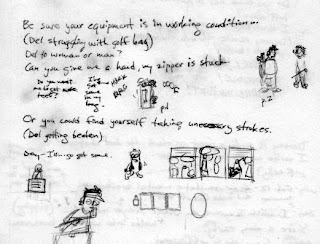 Be sure your equipment is in working condition...
(Del struggling with golf bag)
Del to woman or man?
Can you give me a hand, my zipper is stuck
Do you want me to get more tees?
I've got some in my bag.
p.1
p.2
Or you could find yourself taking unnecessary strokes.
(Del getting beaten)
Deny - I'll go get some.